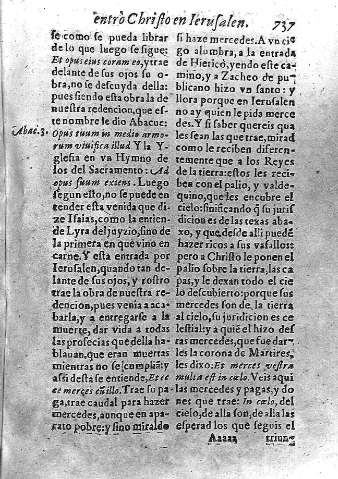 entrò Christo en Ierusalen. 737
se como se pueda librar
de lo que luego se sigue;
Et opus eius coram eo, y trae
delante de sus ojos su o-
bra, no se descuyda della:
pues siendo esta obra la de
nuestra redencion, que es-
te nombre le dio Abacuc:
Abac. 3.
Opus tuum in medio anno-
rum viuifica illud Y la Y-
glesia en vn Hymno de
los del Sacramento: Ad
opus suum exiens. Luego
segun esto, no se puede en
tender esta venida que di-
ze Isaias, como la entien-
de Lyra del juyzio, sino de
la primera en que vino en
carne. Y esta entrada por
Ierusalen, quando tan de-
lante de sus ojos, y rostro
trae la obra de nuestra re-
dencion, pues venia a aca-
barla, y a entregarse a la
muerte, dar vida a todas
las profecias que della ha-
blauan, que eran muertas
mientras no se cumpliā: y
assi desta se entiende, Et ec
ce merces eius cum illo. Trae su pa
ga, trae caudal para hazer
mercedes, aunque en apa-
rato pobre: y sino miraldo
si haze mercedes. A vn cie
go alumbra, a la entrada
de Hiericò, yendo este ca-
mino, y a Zacheo de pu-
blicano hizo vn santo: y
llora porque en Ierusalen
no ay quien le pida merce
des. Y si saber quereis qua
les sean las que trae, mirad
como le reciben diferen-
temente que a los Reyes
de la tierra: estos les reci-
ben con el palio, y valde-
quino, que les encubre el
cielo: sinificando q̃ su juris
dicion es de las texas aba-
xo, y que desde alli puedē
hazer ricos a sus vasallos:
pero a Christo le ponen el
palio sobre la tierra, las ca
pas, y le dexan todo el cie
lo descubierto: porque sus
mercedes son de la tierra
al cielo, su juridicion es ce
lestial: y a quiē el hizo des
tas mercedes, que fue dar-
les la corona de Martires,
les dixo: Et merces vestra
multa est in cœlo. Veis aqui
las mercedes y pagas, y do
nes que trae: In cœlo, del
cielo, de alla son, de alla las
esperad los que seguis el
Aaaaa triun-